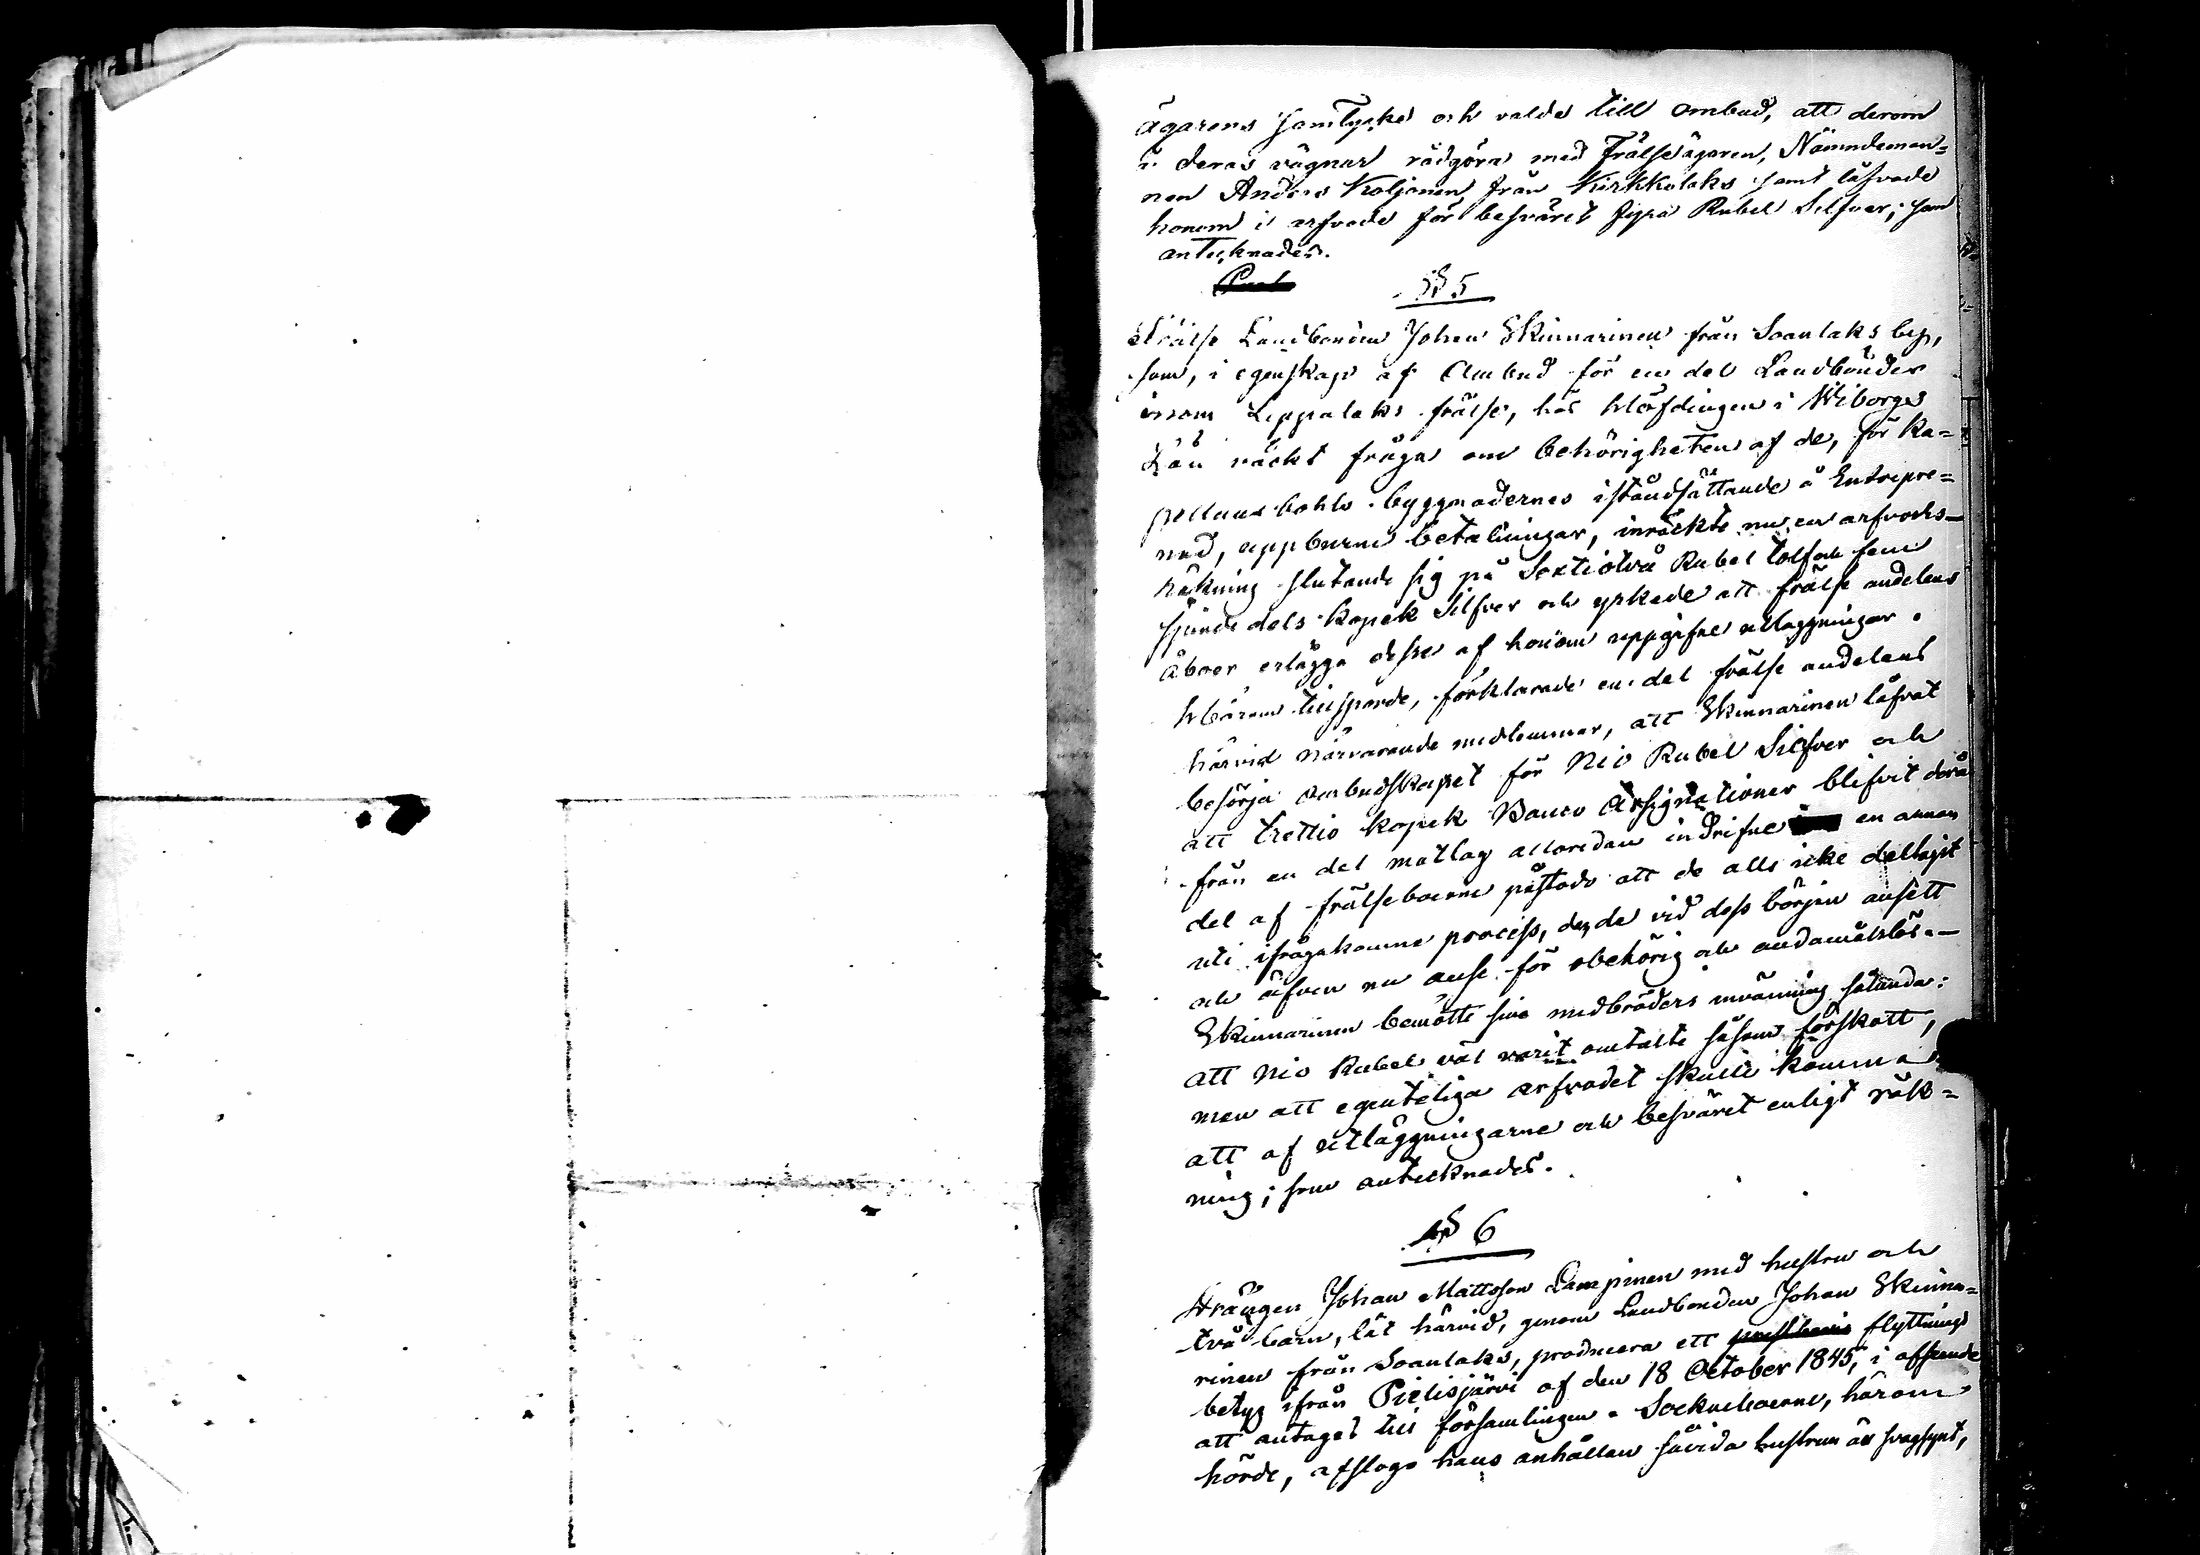 ägarens samtycke och valde till ombud, att derom
i deras vägnar rådgöra med Frälseägaren, Nämndeman=
nen Anders Koljonen från Kirkkolaks samt låfvade
honom i arfvode för besväret fyra Rubel Silfver; som
antecknades.
§ 5
Frälse Landbonden Johan Skinnarinen från Soanlaks by,
som, i egenskap af Ombud för en del Landbönder
inom Leppälaks frälse, hos Höfdingen i Wiborgs
Län väckt fråga om behörigheten af de, för Ka=
pellans bohls byggnadernes iståndsättande å Entrepre=
nad, uppburne betalningar, inräckte nu en arfvods—
räkning slutande sig på Sextiotvå Rubel tolf och fem
sjunde dels kopek Silfver och yrkade att frälse andelens
åboer erlägga dessa af honom uppgifne utläggningar.
Härom tillsporde, förklarade en del frälse andelens
härvid närvarande medlemmar, att Skinnarinen låfvat
besörja ombudskapet för Nio Rubel Silfver och
att trettio kopek Banco Assignationer blifvit derå
från en del matlag allaredan indrifne en annan
del af frälseboerne påstods att de alls icke deltagit
uti ifrågakomne process, den de vid dess början ansett
och äfven nu anse för obehörig och ändamålslös.—
Skinnarinen bemötte sina medbröders invänning sålunda:
att Nio Rubel väl varit omtalte såsom förskott,
men att egenteliga arfvodet skulle komma
att af utläggningarne och besväret enligt räk=
ning; som antecknades.
§ 6
Drängen Johan Mattsson Lampinen med hustru och
två barn, lät härvid, genom Landbonden Johan Skinna=
rinen från Soanlaks, producera ett flyttnings
betyg ifrån Pielisjärvi af den 18 October 1845, i afseende
att antagas till församlingen. Sockneboerne, härom
hörde, afslogo hans anhållan såvida hustrun är svagsynt,